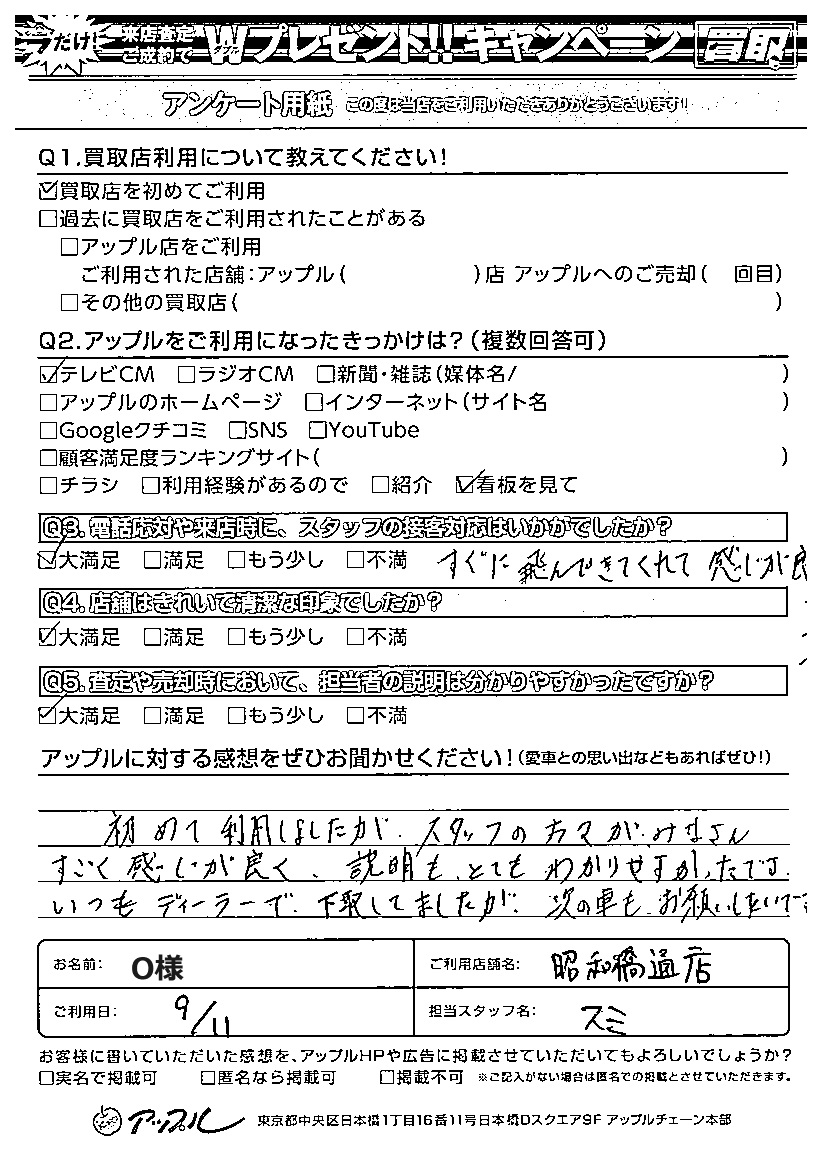 だけ! 来店査定ご成約で Wプレゼント!! キャンペーン 買取
アンケート用紙 この度は当店をご利用いただきありがとうございます!!
Q1.買取店利用について教えてください!
☑買取店を初めてご利用
□過去に買取店をご利用されたことがある
□アップル店をご利用
ご利用された店舗:アップル( )店 アップルへのご売却( 回目)
□その他の買取店( )
Q2.アップルをご利用になったきっかけは?(複数回答可)
☑テレビCM □ラジオCM □新聞・雑誌(媒体名/ )
□アップルのホームページ □インターネット(サイト名 )
□Googleクチコミ □SNS □YouTube
□顧客満足度ランキングサイト( )
□チラシ □利用経験があるので □紹介 ☑看板を見て
Q3.電話応対や来店時に、スタッフの接客対応はいかがでしたか?
☑大満足 □満足 □もう少し □不満 すぐに飛んできてくれて 感じが良
Q4.店舗はきれいで清潔な印象でしたか?
☑大満足 □満足 □もう少し □不満
Q5.査定や売却時において、担当者の説明は分かりやすかったですか?
☑大満足 □満足 □もう少し □不満
アップルに対する感想をぜひお聞かせください!(愛車との思い出などもあればぜひ!)
初めて利用しましたが、スタッフの方々が、みなさん
すごく感じが良く、説明も、とてもわかりやすかったです。
いつもディーラーで、下取してましたが、次の車も、お願いしたいです
お名前: O様 ご利用店舗名: 昭和橋通店
ご利用日: 9/11 担当スタッフ名: スミ
お客様に書いていただいた感想を、アップルHPや広告に掲載させていただいてもよろしいでしょうか?
□実名で掲載可 □匿名なら掲載可 □掲載不可 ※ご記入がない場合は匿名での掲載とさせていただきます。
アップル 東京都中央区日本橋1丁目16番11号日本橋Dスクエア9F アップルチェーン本部